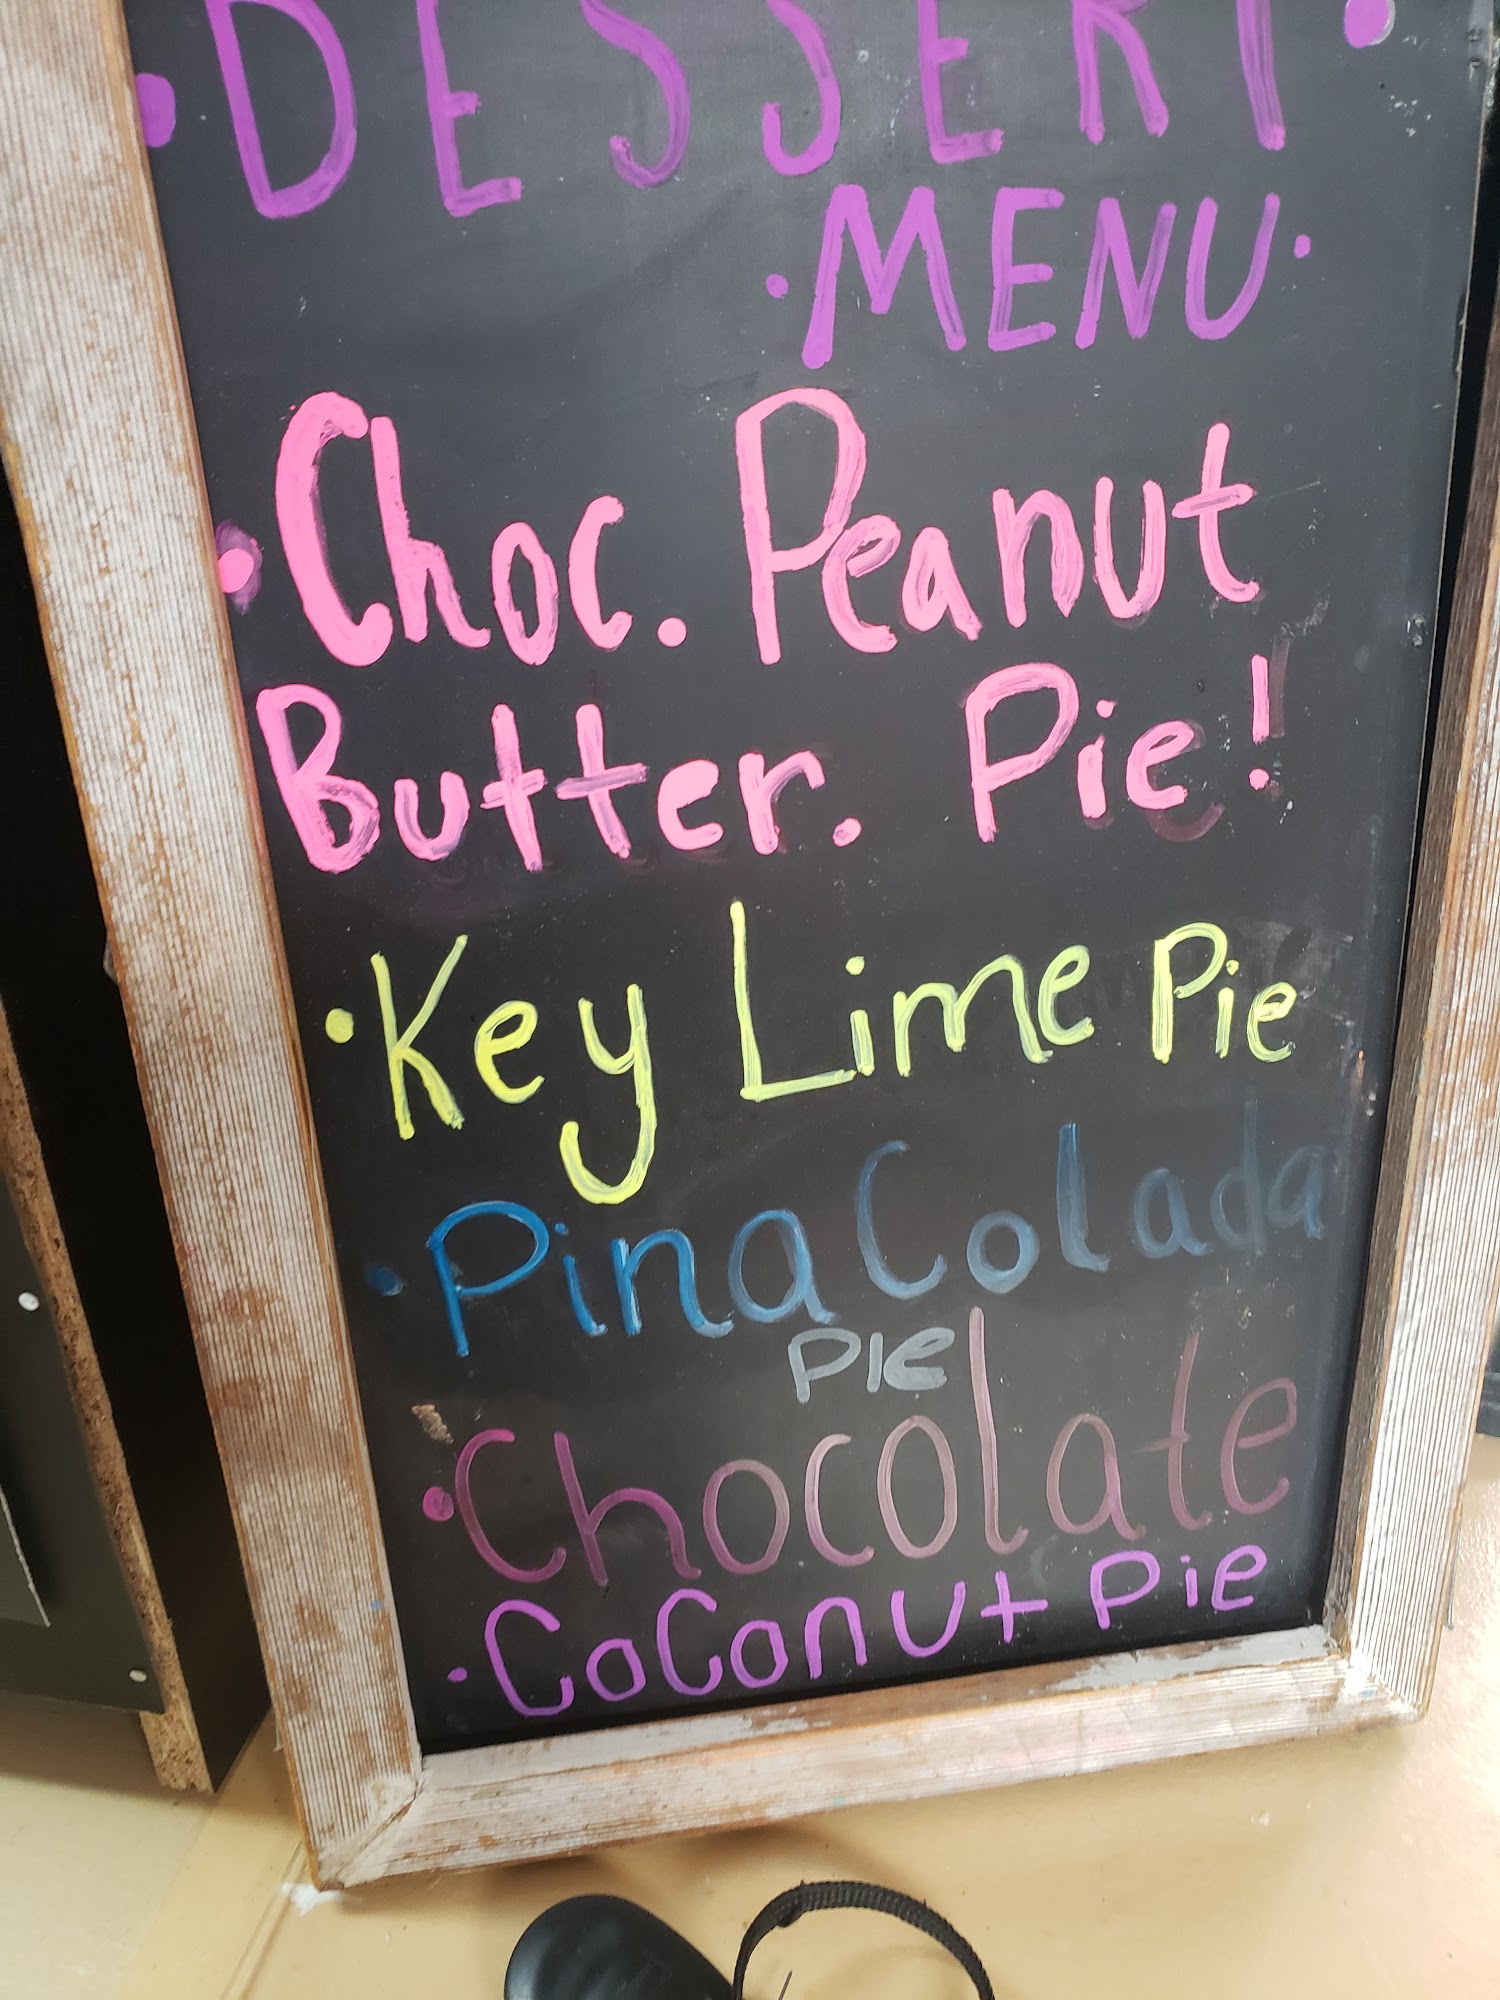 • DESSERT •
• MENU •
• Choc. Peanut
Butter. Pie!
• Key Lime Pie
• Pina Colada
PIE
• Chocolate
• Coconut Pie